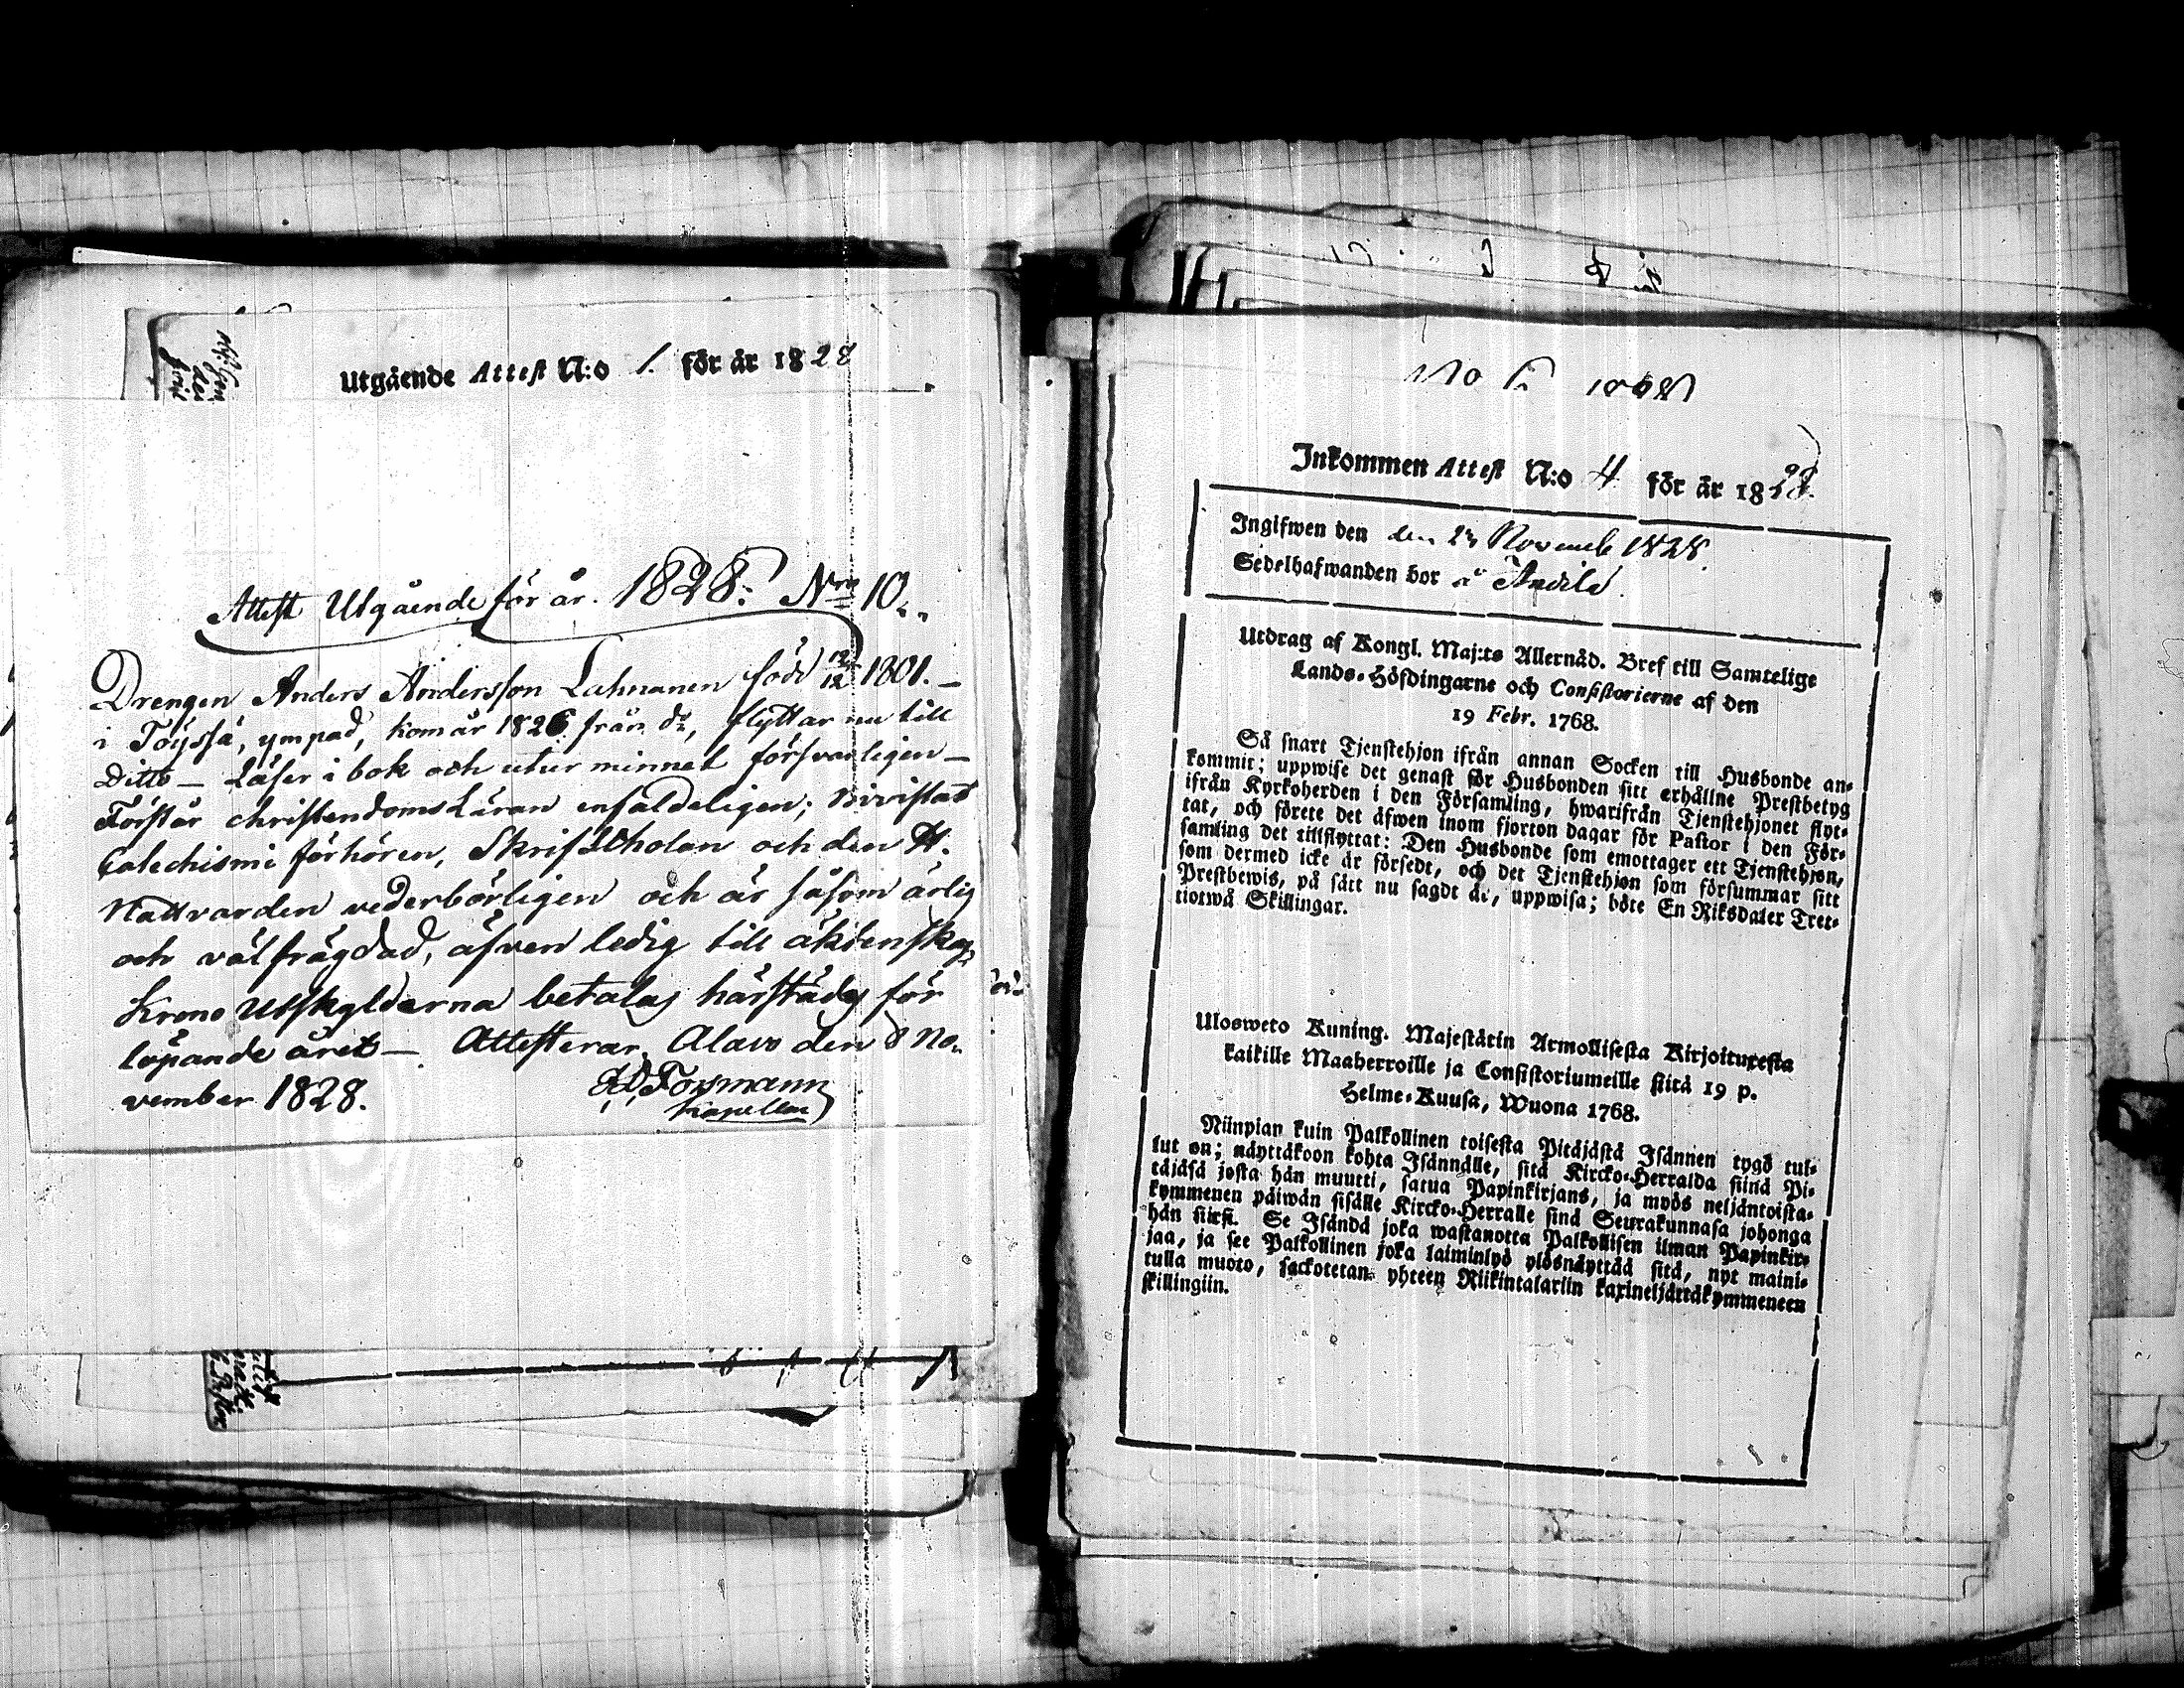 Utgående Attest N:o 1. för år 1828
Attest Utgående för år. 1828. Nro 10.
Drengen Anders Andersson Lahnanen född 12/12 1801. —
i Töyssä, ympad, kom år 1826 från do, flyttar nu till
Ditto — Läser i bok och utur minnet försvarligen —
Förstår christendoms Läran enfaldeligen; bivistat
Catechismi förhören, Skriftskolan och den H.
Nattvarden vederbörligen och är såsom ärlig
och välfrägdad, äfven ledig till äktenskap,
Krono Utskylderna betalas härstädes för
löpande året — Attesterar Alavo den 8 No-
vember 1828.
Forsmann
kapellan
No 1828
Inkommen Attest N:o 4 för år 1828.
Ingifwen den den 23 Novemb 1828.
Sedelhafwanden bor å
Utdrag af Kongl. Maj:ts Allernåd. Bref till Samtelige
Lands-Höfdingarne och Consistorierne af den
19 Febr. 1768.
Så snart Tjenstehjon ifrån annan Socken till Husbonde an-
kommit; uppwise det genast för Husbonden sitt erhållne Prestbetyg
ifrån Kyrkoherden i den Församling, hwarifrån Tjenstehjonet flyt-
tat, och förete det äfwen inom fjorton dagar för Pastor i den För-
samling det tillflyttat: Den Husbonde som emottager ett Tjenstehjon,
som dermed icke är försedt, och det Tjenstehjon som försummar sitt
Prestbewis, på sätt nu sagdt är, uppwisa; böte En Riksdaler Tret-
tiotwå Skillingar.
Ulosweto Kuning. Majestätin Armollisesta Kirjoituxesta
kaikille Maaherroille ja Consistoriumeille siitä 19 p.
Helme-Kuusa, Wuona 1768.
Niinpian kuin Palkollinen toisesta Pitäjästä Isännen tygö tul-
lut on; näyttäkoon kohta Isännälle, sitä Kircko-Herralda siinä Pi-
täjäsä josta hän muutti, satua Papinkirjans, ja myös neljäntoista-
kymmenen päiwän sisälle Kircko-Herralle sinä Seurakunnasa johonga
hän siirsi. Se Isändä joka wastanotta Palkollisen ilman Papinkir-
jaa, ja see Palkollinen joka laiminlyö ylösnäyttää sitä, nyt maini-
tulla muoto, sackotetan yhteen Riikintalariin kaxineljättäkymmeneen
skillingiin.